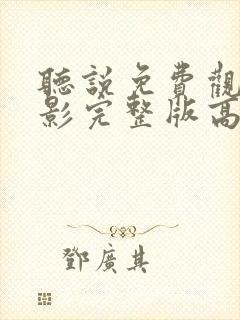 聽說免費觀
影完整版高
鄧廣其